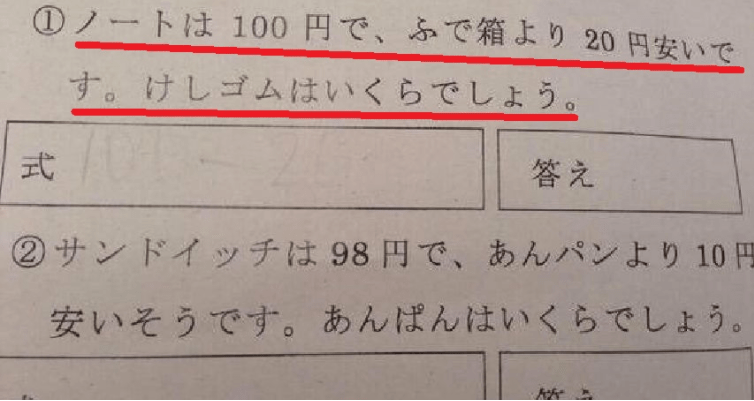 ①ノートは 100 円で、ふで箱より 20 円安いで
す。けしゴムはいくらでしょう。
式
答え
②サンドイッチは 98 円で、あんパンより 10 円
安いそうです。あんぱんはいくらでしょう。